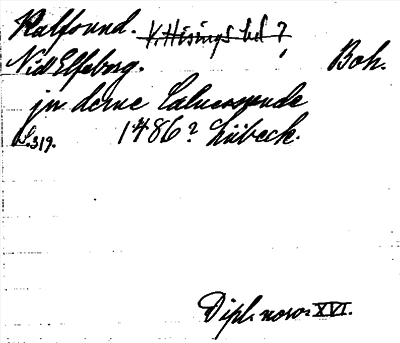 Kalfsund. V. Hisings hd?
Nid Elfsborg. Boh.
jn deme Caluessunde
S. 319. 1486? Lübeck.
Dipl. norv. XVI.